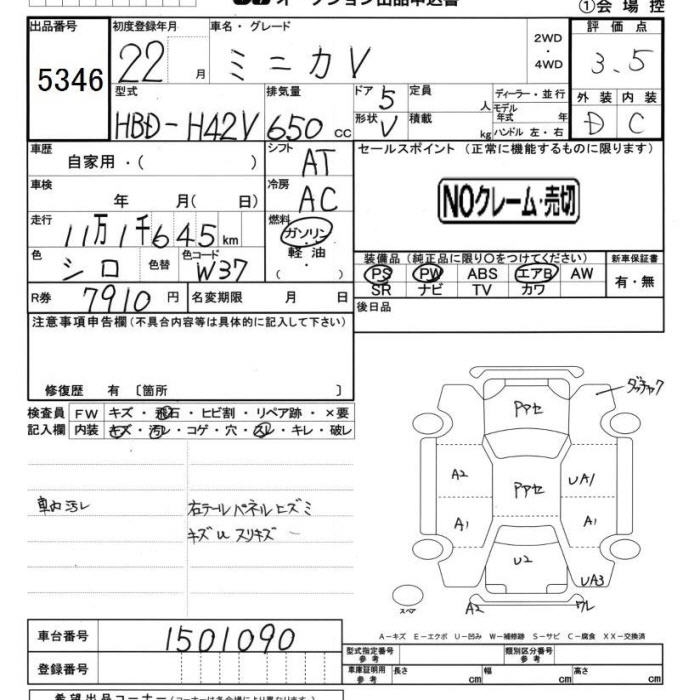 ①会場控
出品番号 初度登録年月 車名・グレード 評価点
5346 22 月 ミニカV 2WD・4WD 3.5
型式 排気量 ドア 定員 ディーラー・並行 外装 内装
HBD-H42V 650cc 5 人 モデル年式 年 D C
形状 V 積載 kg ハンドル 左・右
車歴 自家用・( ) シフト AT セールスポイント (正常に機能するものに限ります)
車検 年 月( 日) 冷房 AC NOクレーム・売切
走行 11万1千645km 燃料 ガソリン・軽油・( )
色 シロ 色替 色コード W37 装備品 (純正品に限り○をつけてください) 新車保証書
PS PW ABS エアB AW 有・無
SR ナビ TV カワ
R券 7910円 名変期限 月 日 後日品
注意事項申告欄 (不具合内容等は具体的に記入して下さい)
修復歴 有 〔箇所 〕
検査員 FW キズ・飛石・ヒビ割・リペア跡・×要
記入欄 内装 キズ・汚レ・コゲ・穴・スレ・キレ・破レ
車内汚レ 右テールパネルヒズミ
キズuスリキズ
PPアセ
A2 PPアセ UA1
A1 A1
U2
UA3
スペア A2 ワレ
A−キズ E−エクボ U−凹み W−補修跡 S−サビ C−腐食 XX−交換済
車台番号 1501090
型式指定番号 参考 類別区分番号 参考
登録番号 車庫証明用 参考 長さ cm 幅 cm 高さ cm